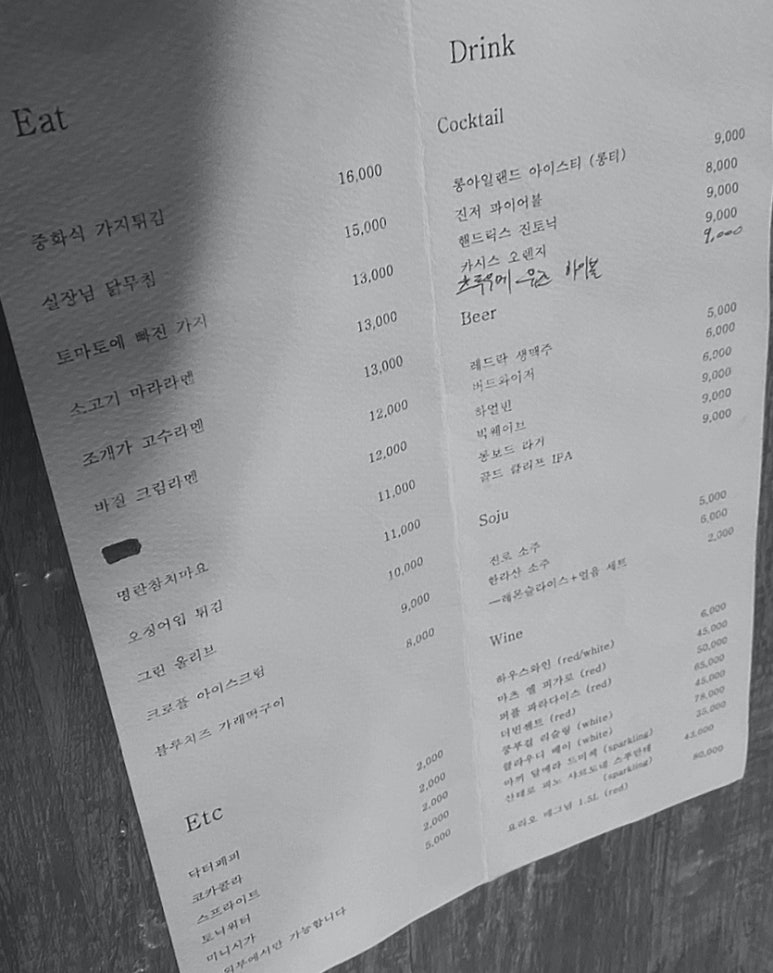 Eat
중화식 가지튀김 16,000
실장님 닭무침 15,000
토마토에 빠진 가지 13,000
소고기 마라라멘 13,000
조개가 고수라멘 13,000
바질 크림라멘 12,000
12,000
명란참치마요 11,000
오징어입 튀김 11,000
그린 올리브 10,000
크로플 아이스크림 9,000
블루치즈 가래떡구이 8,000
Etc
닥터페퍼 2,000
코카콜라 2,000
스프라이트 2,000
토닉워터 2,000
미니시가 5,000
외부에서만 가능합니다
Drink
Cocktail
롱아일랜드 아이스티 (롱티) 9,000
진저 파이어볼 8,000
핸드릭스 진토닉 9,000
카시스 오렌지 9,000
하이볼 9,000
Beer
레드락 생맥주 5,000
버드와이저 6,000
하얼빈 6,000
빅웨이브 9,000
롱보드 라거 9,000
골드 클리프 IPA 9,000
Soju
진로 소주 5,000
한라산 소주 6,000
ㅡ레몬슬라이스+얼음 세트 2,000
Wine
하우스와인 (red/white) 6,000
마츠 엘 피카로 (red) 45,000
퍼플 파라다이스 (red) 50,000
더빈센트 (red) 65,000
리슬링 (white) 45,000
클라우디 베이 (white) 78,000
드미섹 (sparkling) 35,000
산테로 피노 샤르도네 스푸만테 43,000
(sparkling)
요리오 매그넘 1.5L (red) 80,000